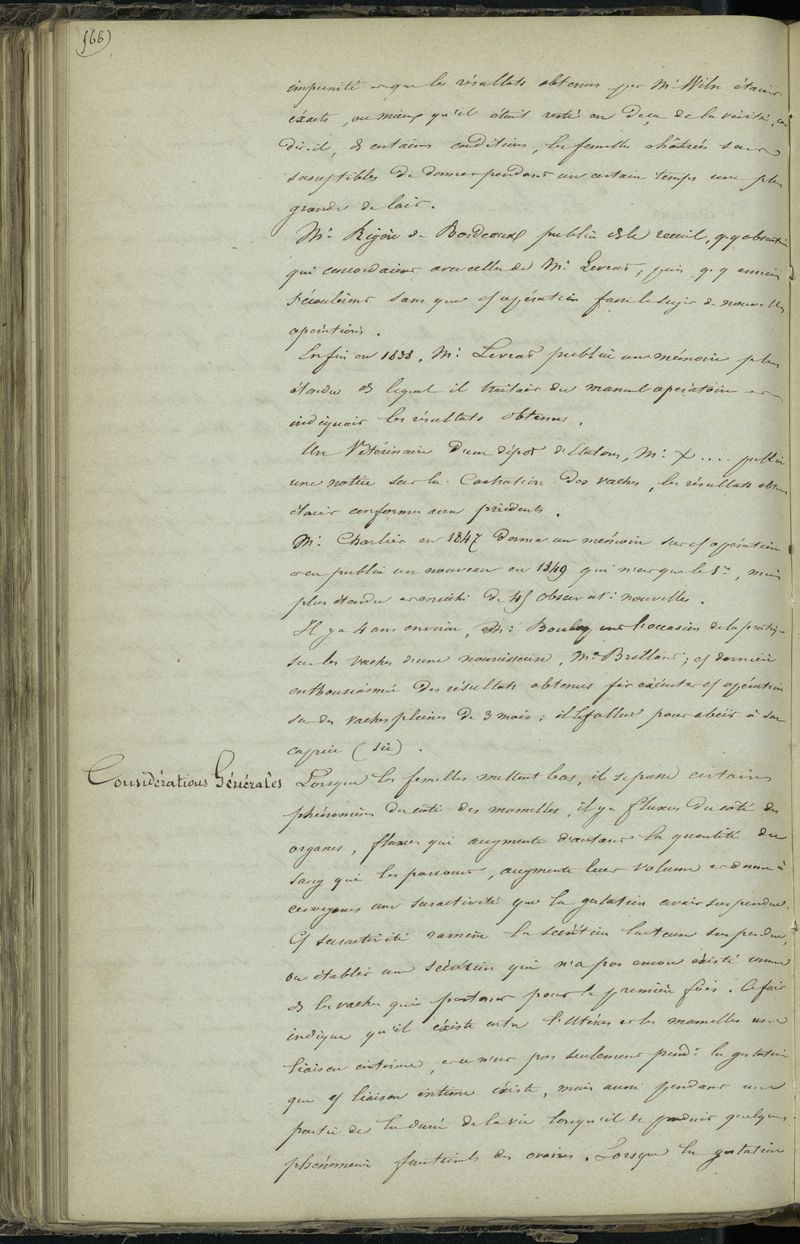 (66)
impunité et que les résultats obtenus par Mr Wiln étaient
éxacts, ou mieux qu'il était resté en deça de la vérité, car
dit-il, ds certaines conditions, les femelles châtrées sont
susceptibles de donner pendant un certain temps une plus
grande de lait.
Mr Régère de Bordeaux publia ds le recueil, q.q. observations
qui concordaient avec celles de Mr Levrat, puis q.q. années
s'écoulèrent sans que cette opération fasse le sujet de nouvelles
opérations.
Enfin en 1838, Mr Levrat publia un mémoire plus
étendu ds lequel il traitait du manuel opératoire et
indiquait les résultats obtenus.
Un Vétérinaire d'un dépôt d'Etalons, Mr X.... publia
une notice sur la Castration des vaches, les résultats
étaient conformes aux précédents.
Mr Charlier en 1847 donna un mémoire sur cette opération
et en publia un nouveau en 1849 qui n'est que le 1er, mais
plus étendu et enrichi de observat: nouvelles.
Il y a 4 ans environ, Mr Bouley eut l'occasion de la pratiq-
sur les vaches d'une nourrisseuse, Me Brillant; cette dernière
enthousiasmée des résultats obtenus fit exécuter cette opération
sur des vaches pleines de 3 mois; il le fallut pour obéir à son
caprice (sic).
Considérations Générales
Lorsque les femelles mettent bas, il se passe certains
phénomènes du côté des mamelles, il y a fluxus du côté des
organes, fluxus qui augmente d'autant la quantité du
sang qui les parcourt, augmente leur volume et donne à
ces organes une suractivité que la gestation avait suspendue.
Cette suractivité ramène la secrétion lacteuse suspendue,
ou établit une sécrétion qui n'a pas encore éxisté comme
ds les vaches qui portent pour la première fois. Ce fait
indique qu'il éxiste entre l'Utérus et les mamelles une
liaison intime, et ce n'est pas seulement pendt la gestation
que cette liaison intime éxiste, mais aussi pendant une
partie de la durée de la vie lorsqu'il se produit quelques
phénomènes fonctionels des ovaires. Lorsque la gestation